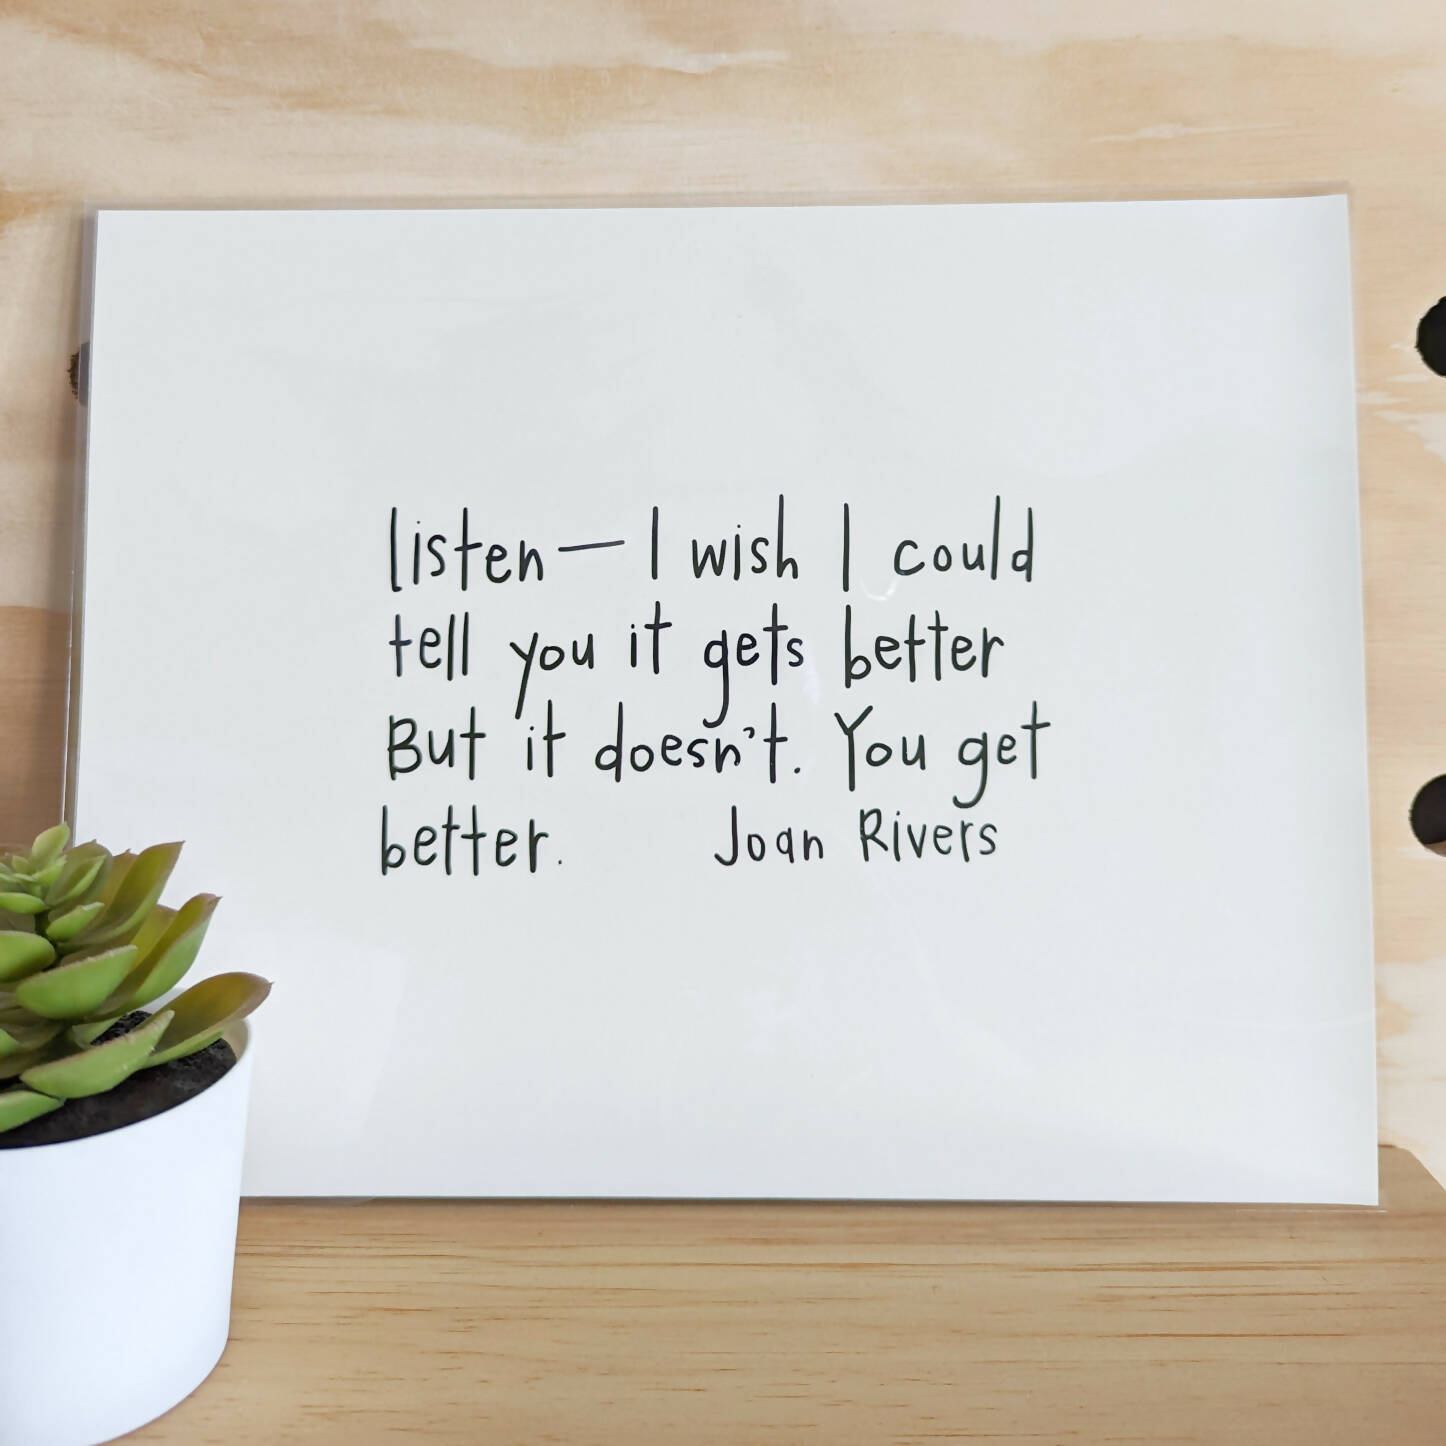 listen — I wish I could
tell you it gets better
But it doesn't. You get
better. Joan Rivers